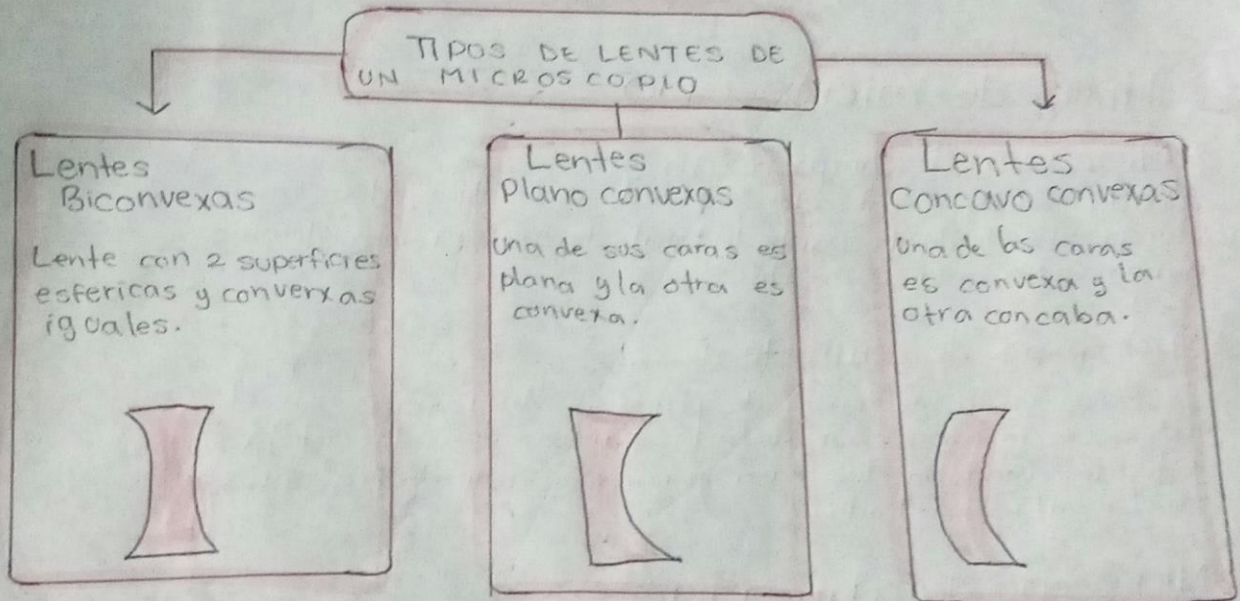 TIPOS DE LENTES DE
UN MICROSCOPIO
Lentes
Biconvexas
Lente con 2 superficies
esfericas y converxas
iguales.
Lentes
Plano convexas
Una de sus caras es
plana y la otra es
convexa.
Lentes
Concavo convexas
Una de las caras
es convexa y la
otra concaba.